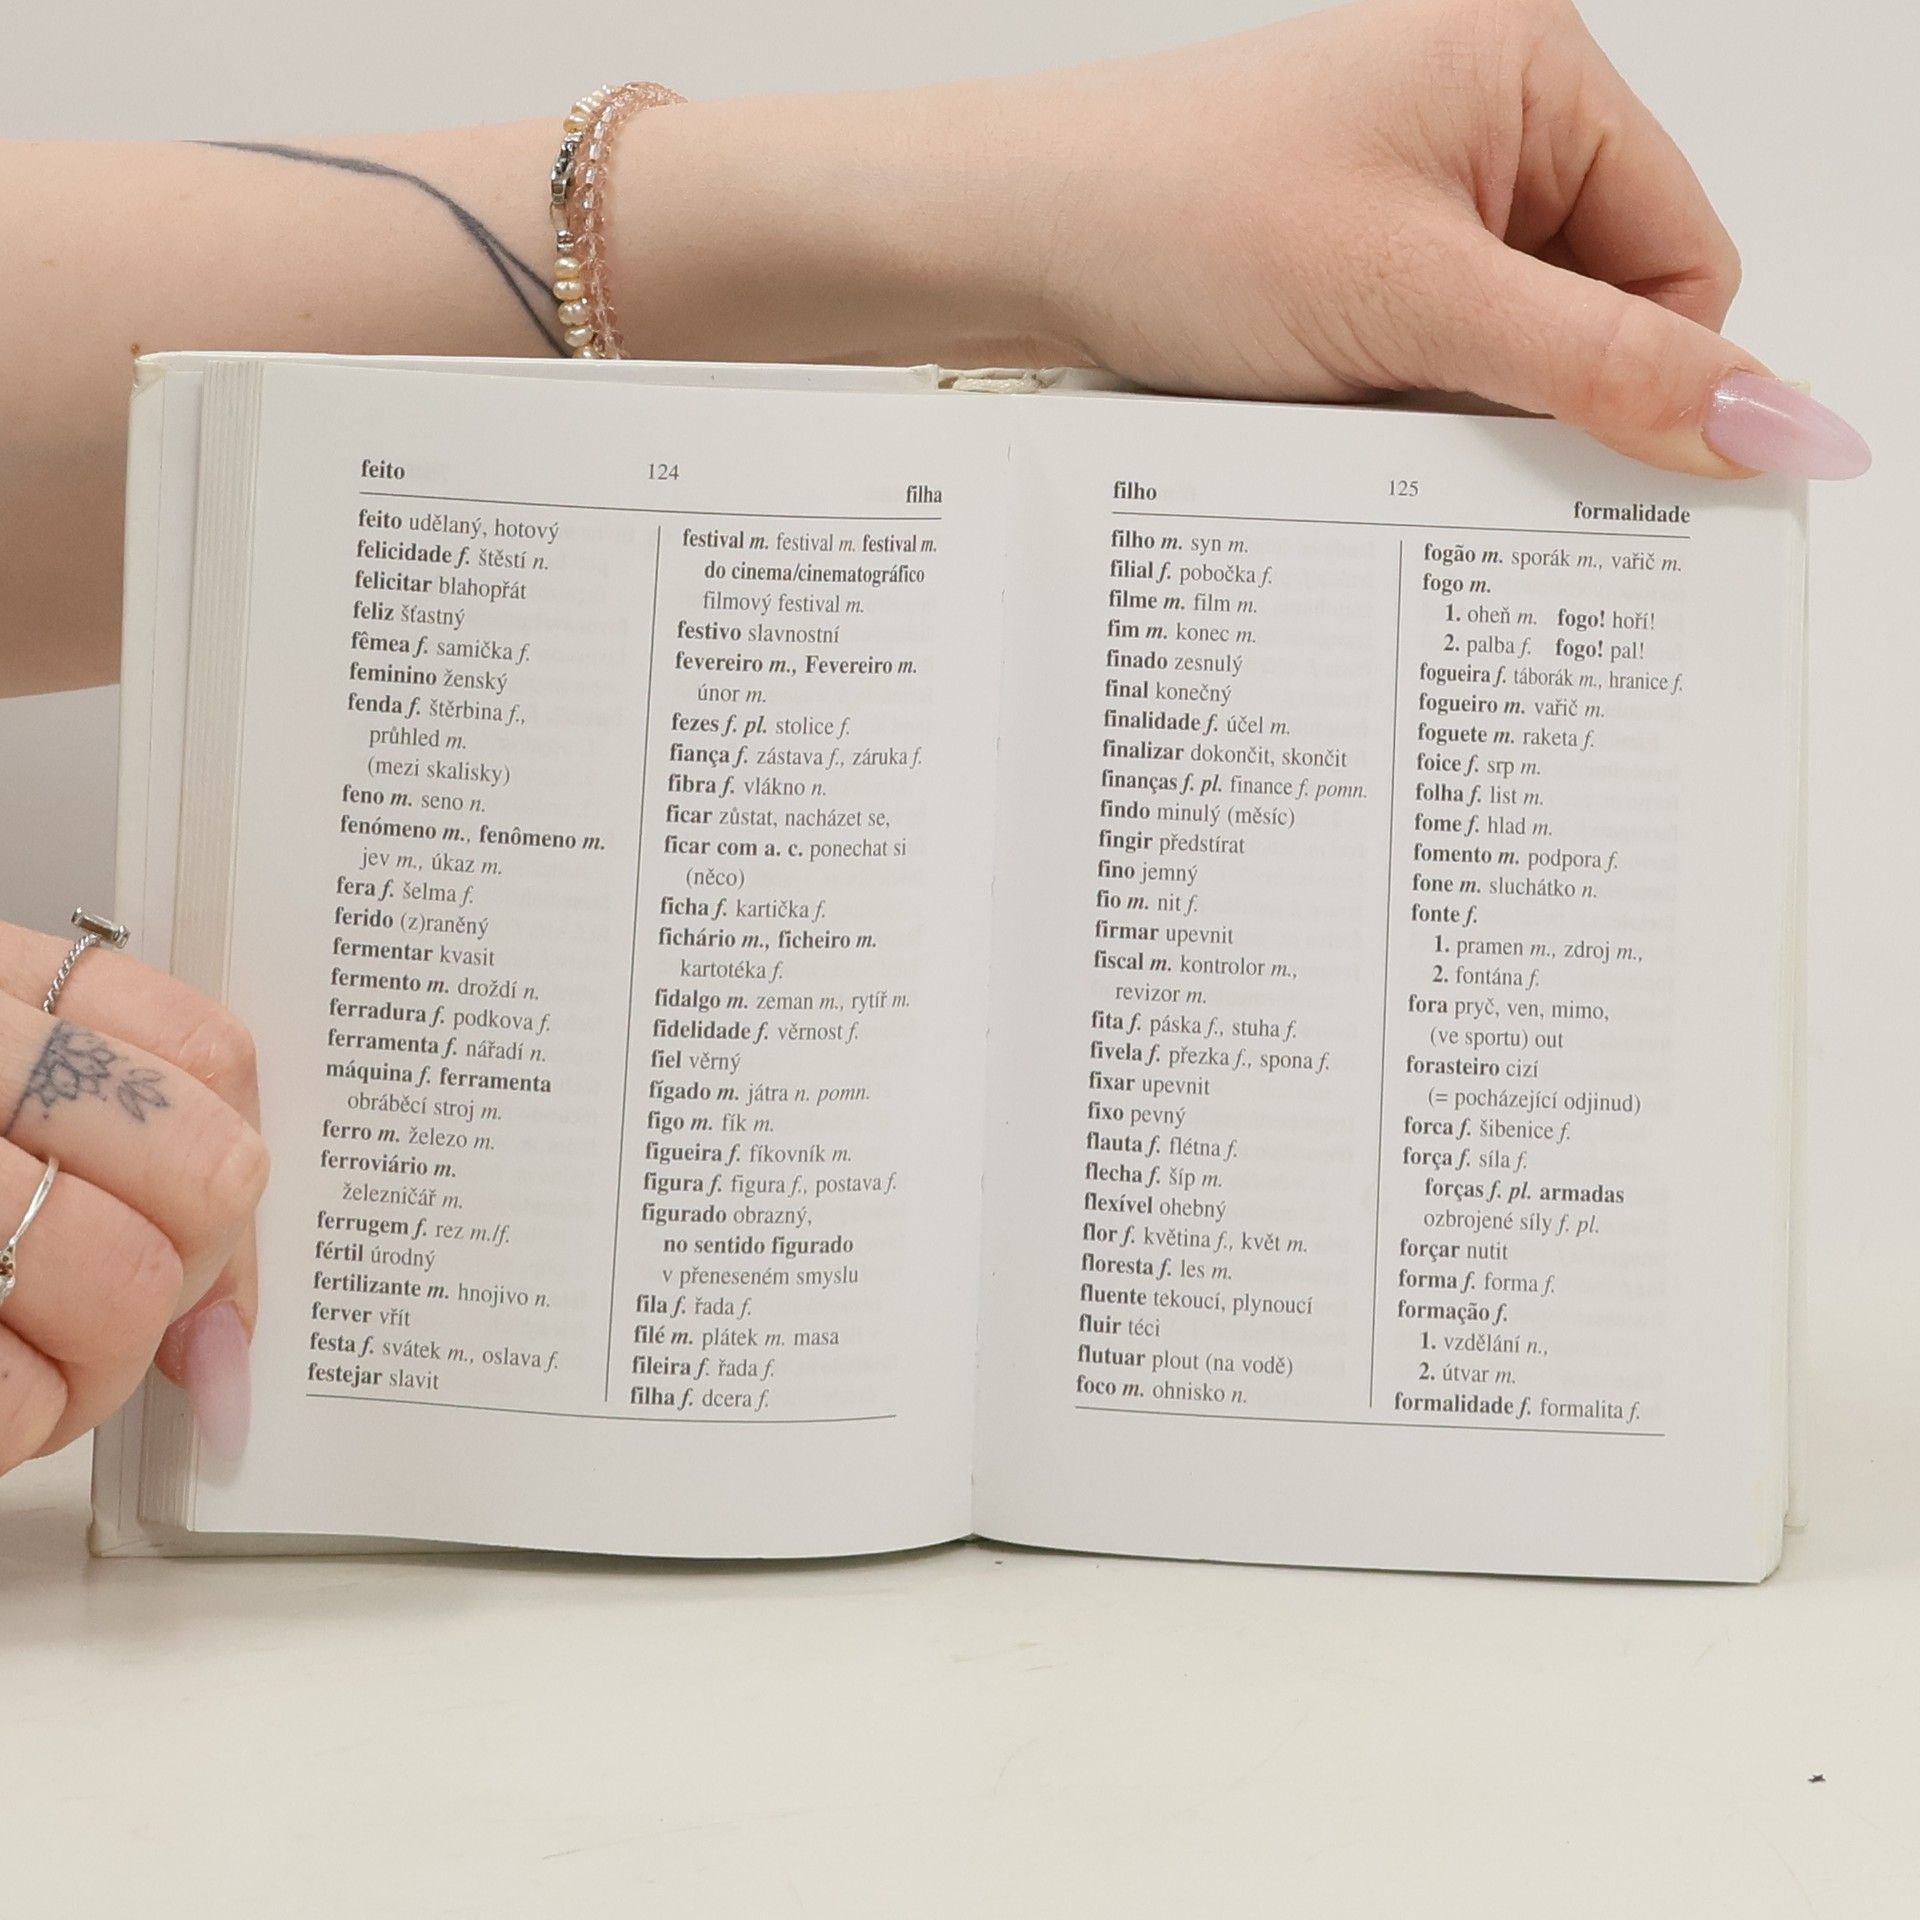 feito 124 filha
feito udělaný, hotový
felicidade f. štěstí n.
felicitar blahopřát
feliz šťastný
fêmea f. samička f.
feminino ženský
fenda f. štěrbina f.,
průhled m.
(mezi skalisky)
feno m. seno n.
fenómeno m., fenômeno m.
jev m., úkaz m.
fera f. šelma f.
ferido (z)raněný
fermentar kvasit
fermento m. droždí n.
ferradura f. podkova f.
ferramenta f. nářadí n.
máquina f. ferramenta
obráběcí stroj m.
ferro m. železo m.
ferroviário m.
železničář m.
ferrugem f. rez m./f.
fértil úrodný
fertilizante m. hnojivo n.
ferver vřít
festa f. svátek m., oslava f.
festejar slavit
festival m. festival m. festival m.
do cinema/cinematográfico
filmový festival m.
festivo slavnostní
fevereiro m., Fevereiro m.
únor m.
fezes f. pl. stolice f.
fiança f. zástava f., záruka f.
fibra f. vlákno n.
ficar zůstat, nacházet se,
ficar com a. c. ponechat si
(něco)
ficha f. kartička f.
fichário m., ficheiro m.
kartotéka f.
fidalgo m. zeman m., rytíř m.
fidelidade f. věrnost f.
fiel věrný
fígado m. játra n. pomn.
figo m. fík m.
figueira f. fíkovník m.
figura f. figura f., postava f.
figurado obrazný,
no sentido figurado
v přeneseném smyslu
fila f. řada f.
filé m. plátek m. masa
fileira f. řada f.
filha f. dcera f.
filho 125 formalidade
filho m. syn m.
filial f. pobočka f.
filme m. film m.
fim m. konec m.
finado zesnulý
final konečný
finalidade f. účel m.
finalizar dokončit, skončit
finanças f. pl. finance f. pomn.
findo minulý (měsíc)
fingir předstírat
fino jemný
fio m. nit f.
firmar upevnit
fiscal m. kontrolor m.,
revizor m.
fita f. páska f., stuha f.
fivela f. přezka f., spona f.
fixar upevnit
fixo pevný
flauta f. flétna f.
flecha f. šíp m.
flexível ohebný
flor f. květina f., květ m.
floresta f. les m.
fluente tekoucí, plynoucí
fluir téci
flutuar plout (na vodě)
foco m. ohnisko n.
fogão m. sporák m., vařič m.
fogo m.
1. oheň m. fogo! hoří!
2. palba f. fogo! pal!
fogueira f. táborák m., hranice f.
fogueiro m. vařič m.
foguete m. raketa f.
foice f. srp m.
folha f. list m.
fome f. hlad m.
fomento m. podpora f.
fone m. sluchátko n.
fonte f.
1. pramen m., zdroj m.,
2. fontána f.
fora pryč, ven, mimo,
(ve sportu) out
forasteiro cizí
(= pocházející odjinud)
forca f. šibenice f.
força f. síla f.
forças f. pl. armadas
ozbrojené síly f. pl.
forçar nutit
forma f. forma f.
formação f.
1. vzdělání n.,
2. útvar m.
formalidade f. formalita f.